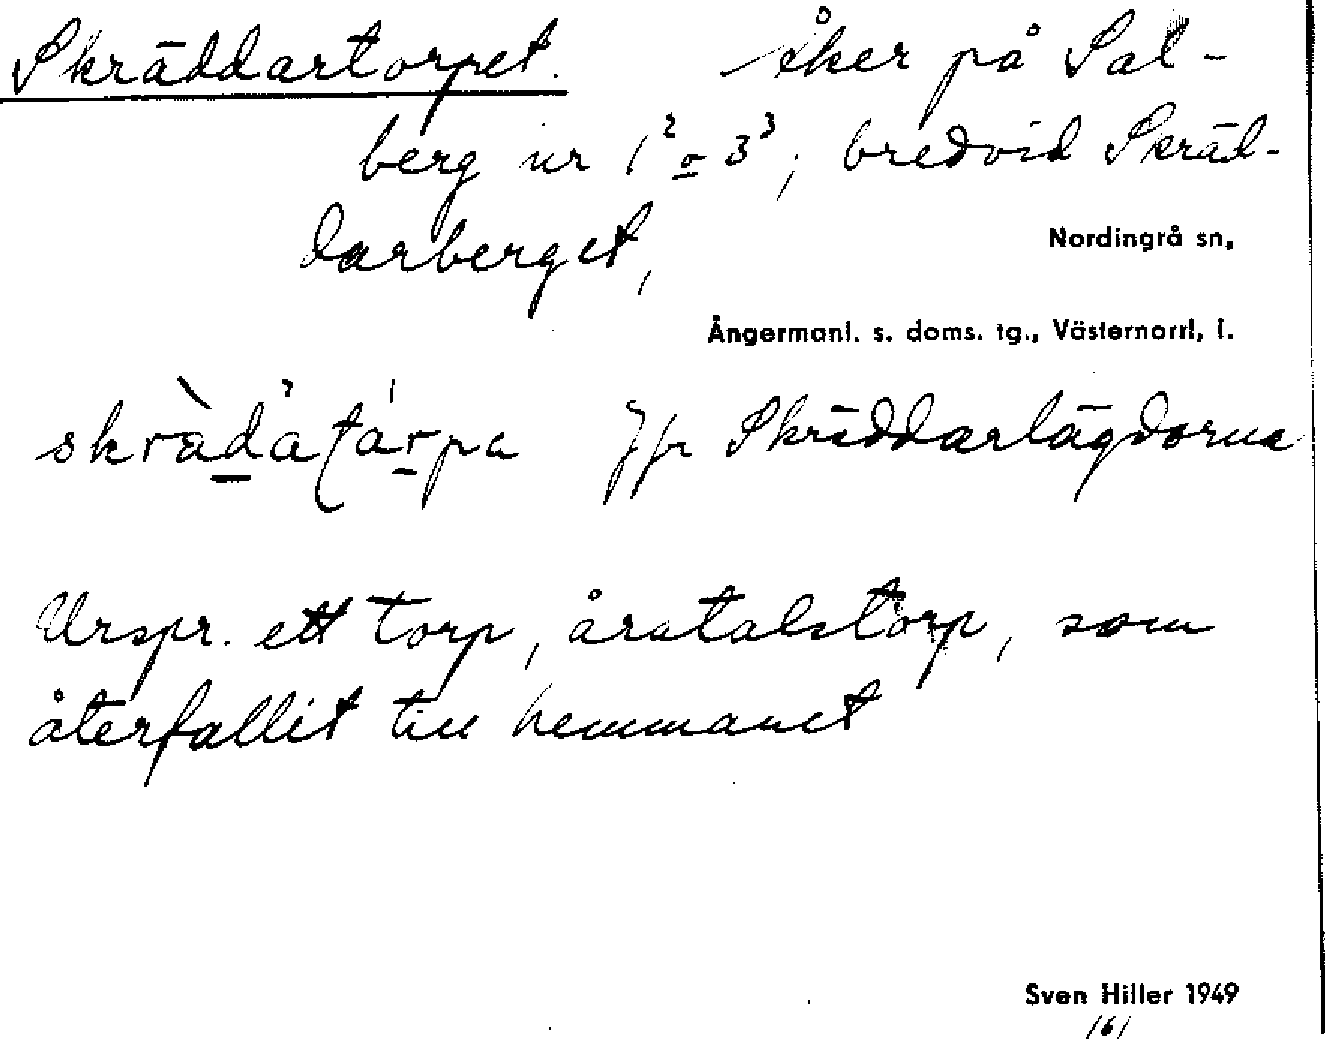 Skräddartorpet. åker på Sal-
berg nr 1² o 3³, bredvid Skräd-
darberget,
Nordingrå sn,
Ångermanl. s. doms. tg., Västernorrl, l.
Jfr Skräddarlägdorna
Urspr. ett torp, åratalstorp, som
återfallit till hemmanet
Sven Hiller 1949
161